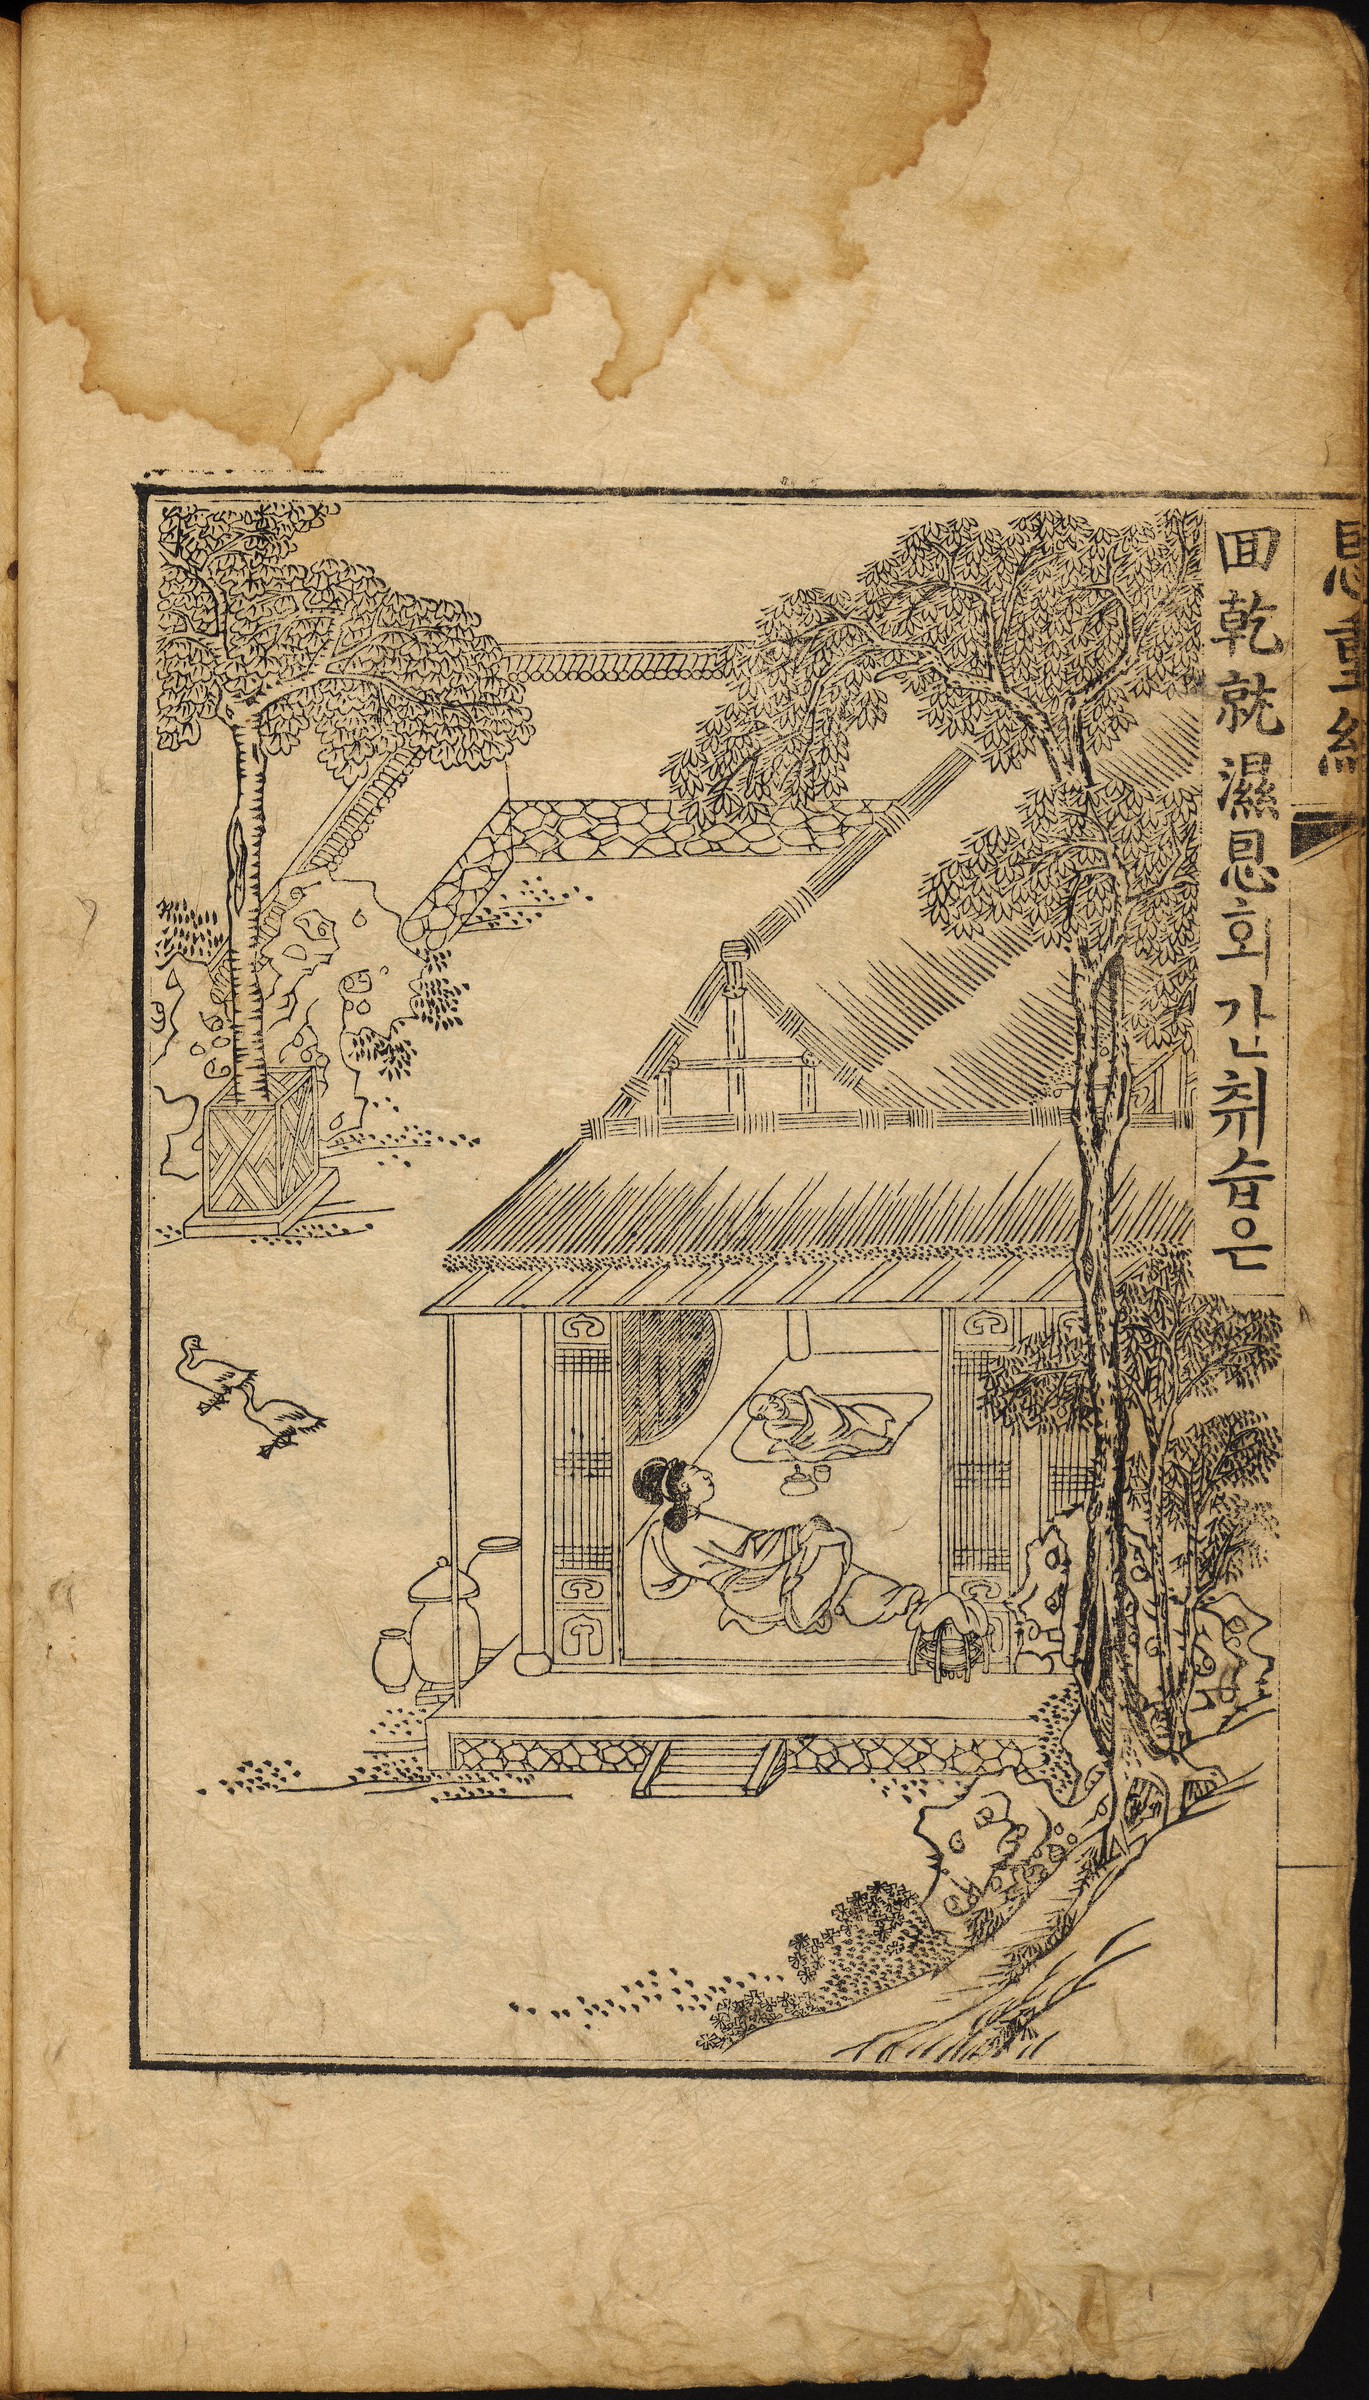 恩重經
回乾就濕恩회간취습은